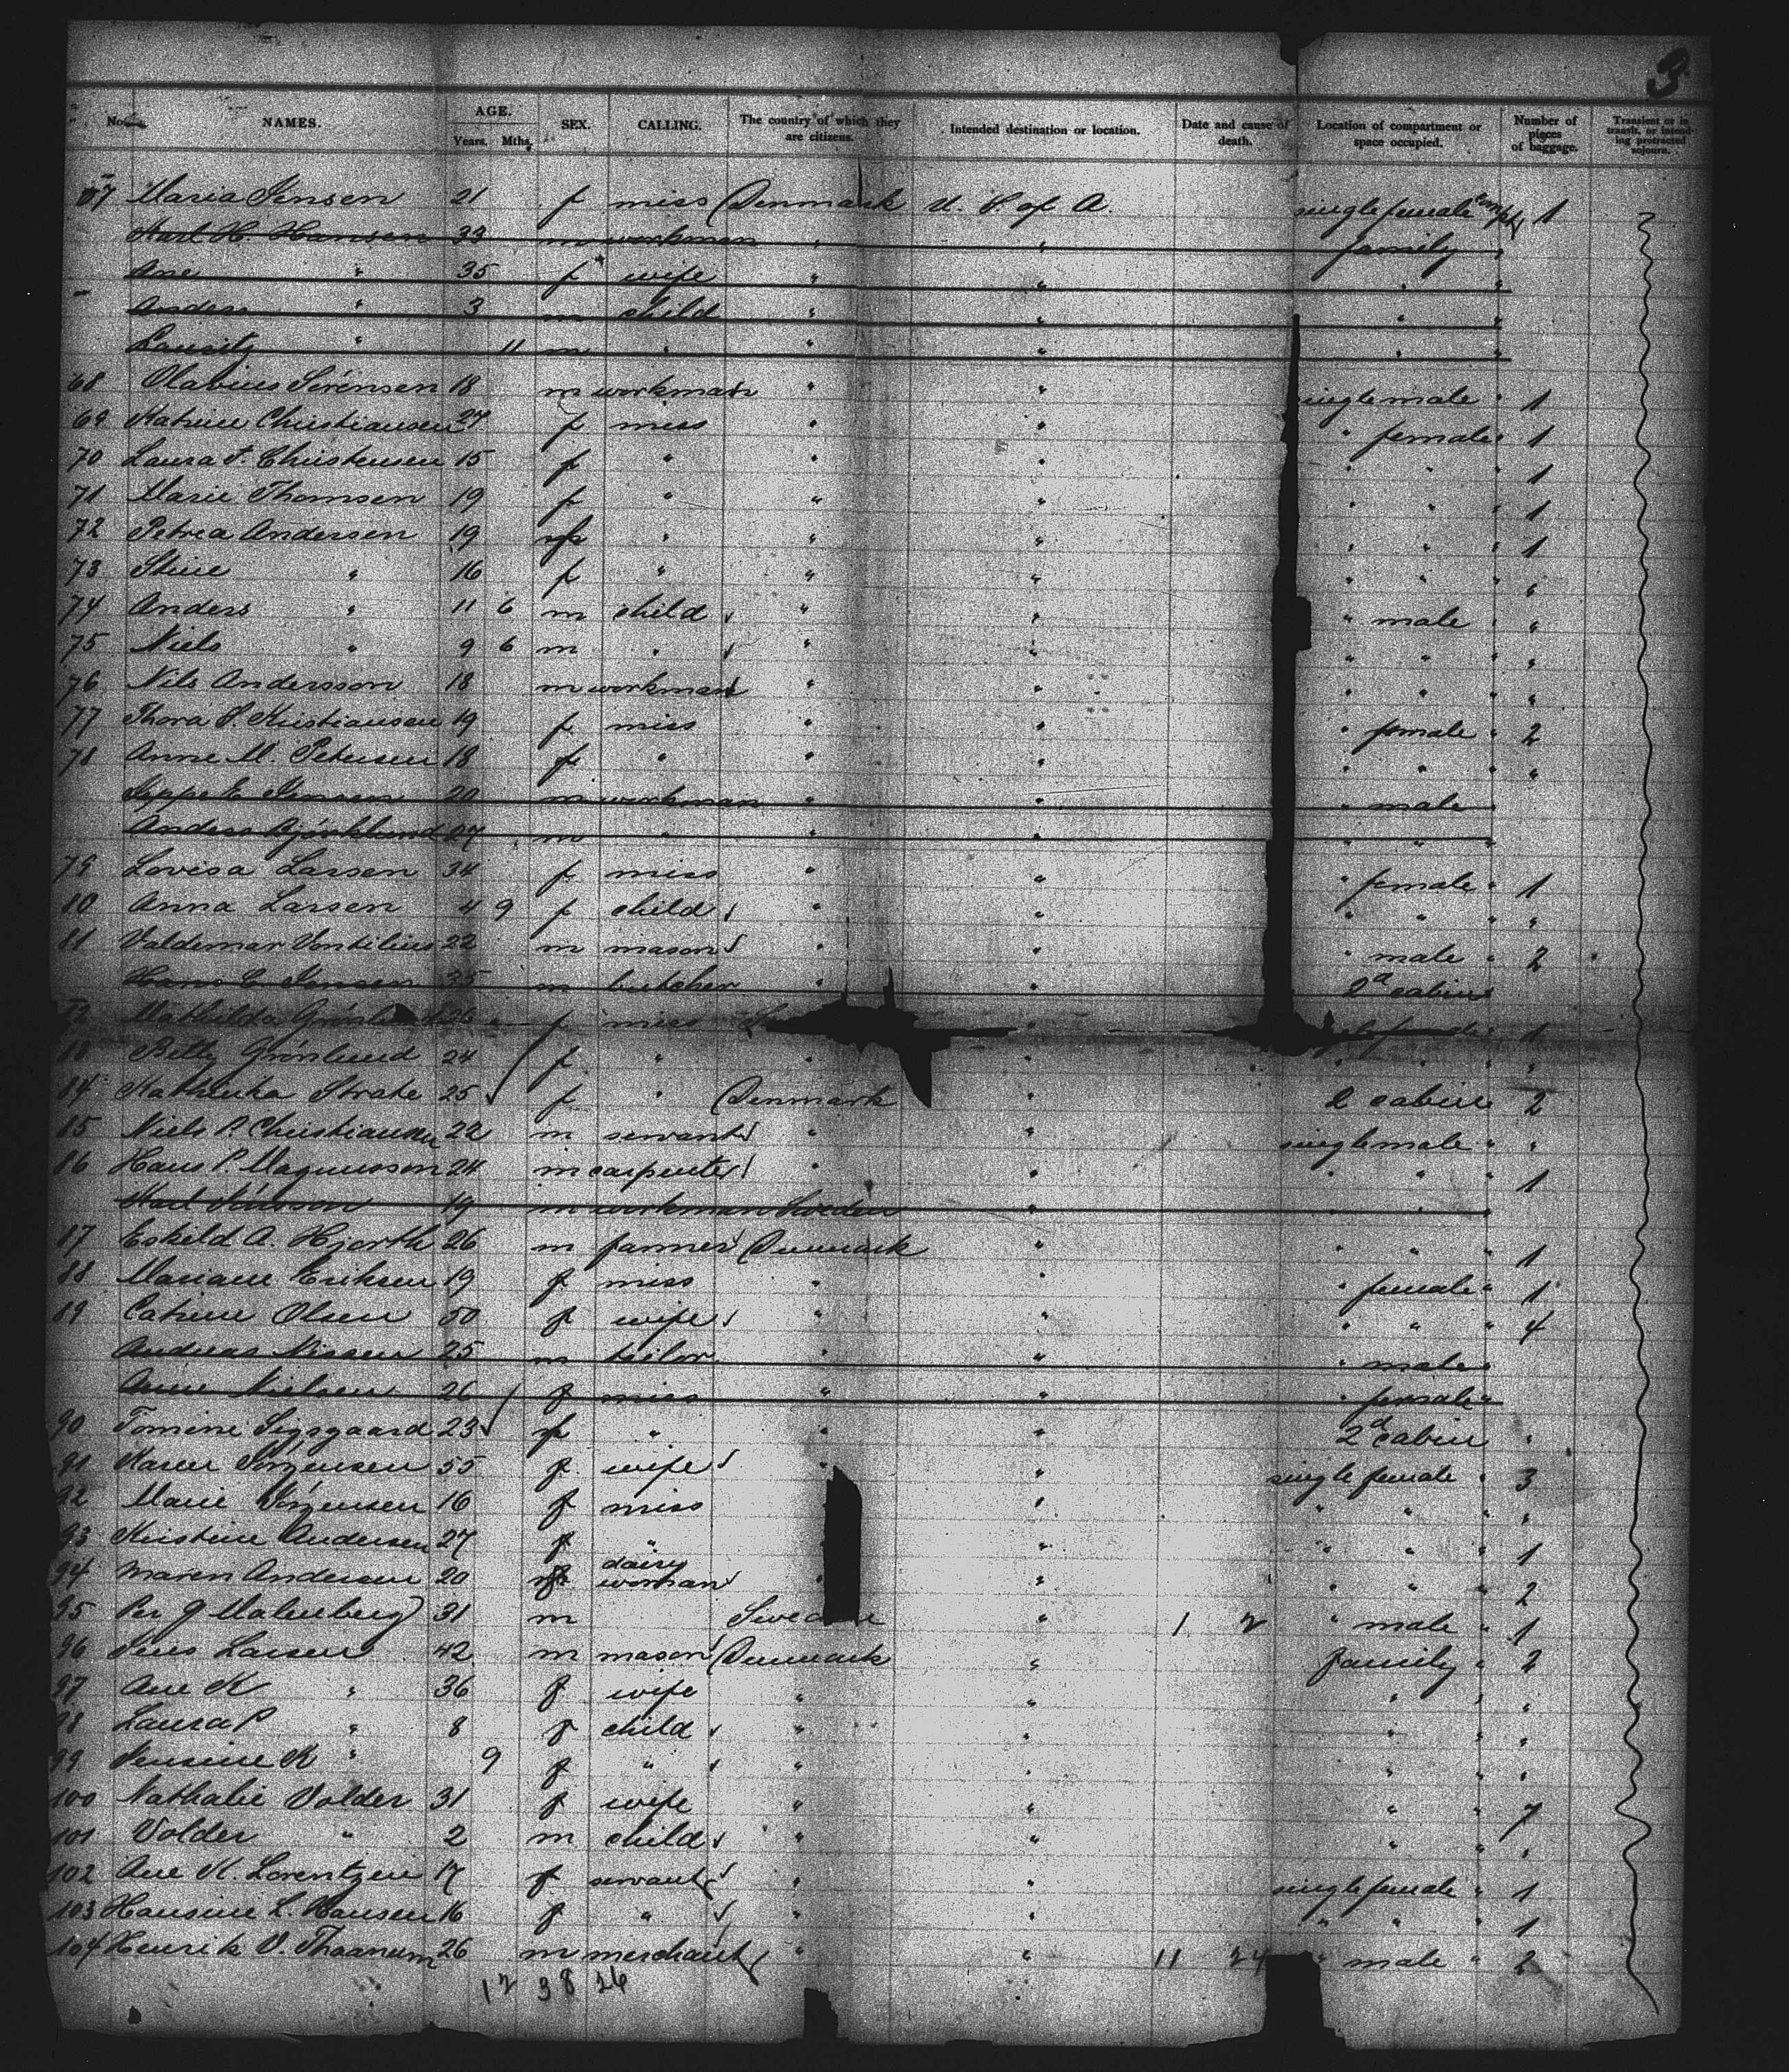 3
No. NAMES. AGE. Years. Mths. SEX. CALLING. The country of which they are citizens. Intended destination or location. Date and cause of death. Location of compartment or space occupied. Number of pieces of baggage. Transient or in transit, or intending protracted sojourn.
67 Maria Jensen 21 f miss Denmark U. S. of A. single female 1
Karl H. Hansen 33 m workman " " family "
Ane " 35 f wife " " " "
Anders " 3 m child " " " "
Lauritz " 11 m " " " " "
68 Olavius Sörensen 18 m workman " " single male " 1
69 Katrine Christiansen 27 f miss " " " female " 1
70 Laura P. Christensen 15 f " " " " " 1
71 Marie Thomsen 19 f " " " " " 1
72 Petrea Andersen 19 f " " " " " " 1
73 Stine " 16 f " " " " " " "
74 Anders " 11 6 m child " " " male " "
75 Niels " 9 6 m " " " " " " "
76 Nils Andersson 18 m workman " " " " " "
77 Thora S. Kristiansen 19 f miss " " " female " 2
78 Anne M. Petersen 18 f " " " " " " "
Jeppe E. Jensen 20 m workman " " " male "
Anders Björklund 27 m " " " " " "
79 Lovisa Larsen 34 f miss " " " female " 1
80 Anna Larsen 4 9 f child " " " " " "
81 Valdemar Vontilius 22 m mason " " " male " 2
Hans E. Jensen 35 m butcher " " 2d cabin
Mathilda f miss 1
83 Betty Grönlund 24 f " " " " " "
84 Kathinka Strate 25 f " Denmark " 2 cabin 2
85 Niels P. Christiansen 22 m servant " " single male " "
86 Hans P. Magnusson 24 m carpenter " " " " " 1
Karl 19 m workman Sweden " " " "
87 Eskild A. Hjorth 26 m farmer Denmark " " " " 1
88 Mariane Eriksen 19 f miss " " " female " 1
89 Catrine Olsen 50 f wife " " " " " 4
Andreas Nissen 25 m tailor " " " male "
Anne Nielsen 26 f miss " " " female "
90 Tomine Sigsgaard 23 f " " " 2d cabin "
91 Karen Jörgensen 55 f wife " " single female " 3
92 Marie Jörgensen 16 f miss " " " " "
93 Kristine Andersen 27 f " " " " " 1
94 Maren Andersen 20 f dairy woman " " " " " 2
95 Per J Malenberg 31 m Sweden " 1 2 " male " 1
96 Jens Larsen 42 m mason Denmark " family " 2
97 Ane K " 36 f wife " " " " "
98 Laura P " 8 f child " " " " "
99 Jensine K " 9 f " " " " " "
100 Nathalie Volder 31 f wife " " " " 7
101 Volder " 2 m child " " " " "
102 Ane K. Lorentzen 17 f servant " " single female " 1
103 Hansine L. Hansen 16 f " " " " " 1
104 Henrik V. Thaanum 26 m merchant " " 11 24 " male " 2
12 38 26